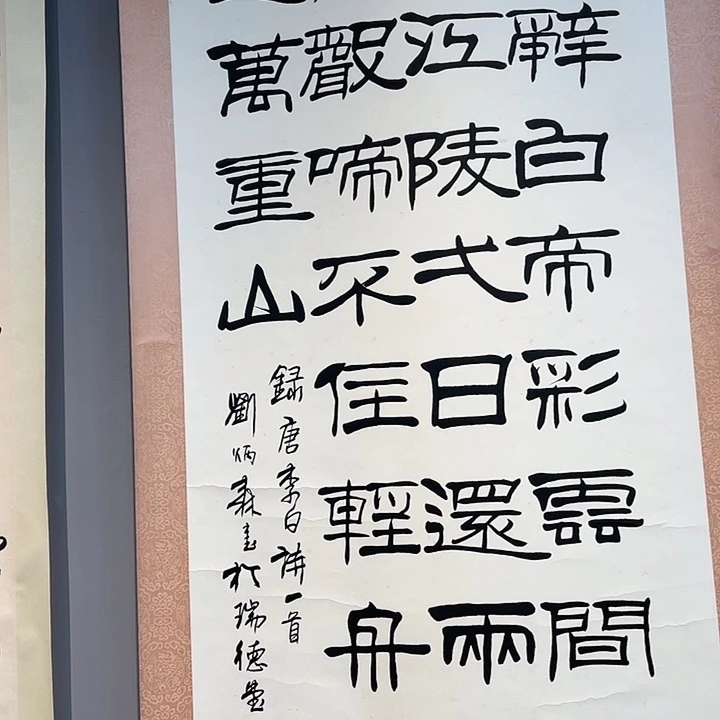 辭白帝彩雲間
江陵弌日還兩
聲啼不住輕舟
萬重山
録唐李白詩一首
劉炳森書於瑞德